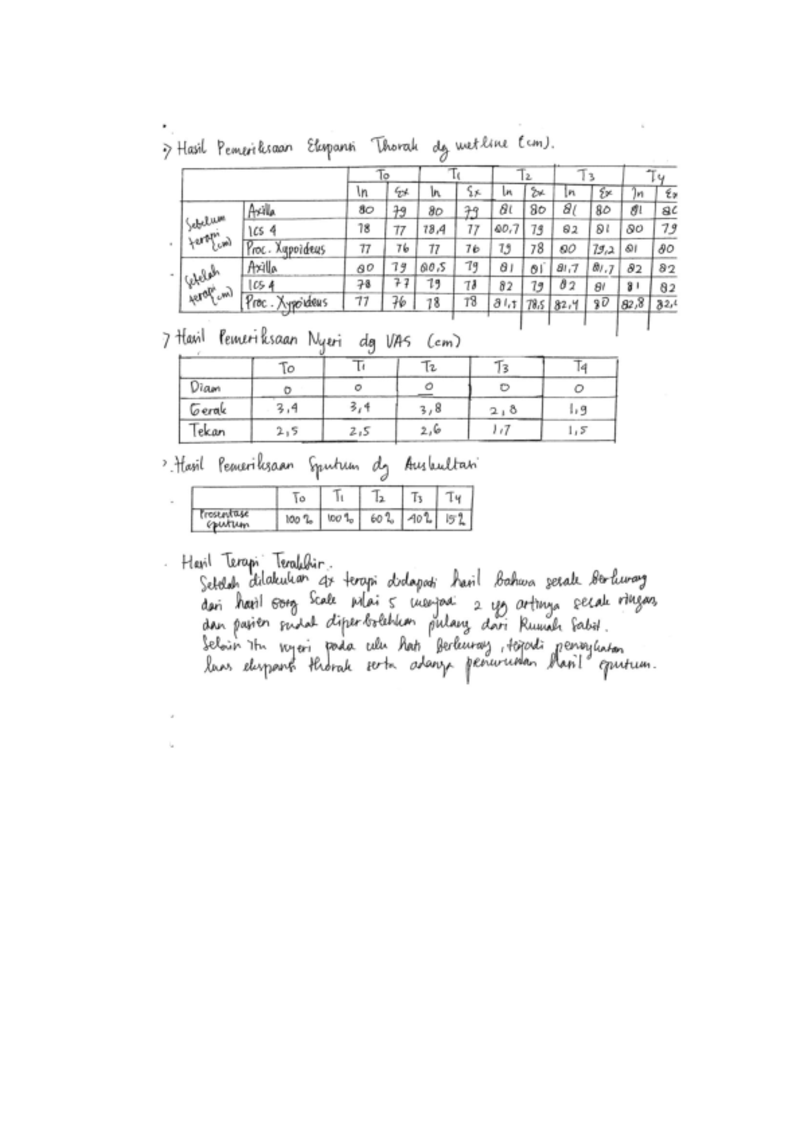 Hasil Pemeriksaan Ekspansi Thorak dg metline (cm).
T0 T1 T2 T3 T4
In Ex In Ex In Ex In Ex In Ex
Sebelum terapi (cm)
Axilla 80 79 80 79 81 80 81 80 81
ICS 4 78 77 78,4 77 80,7 79 82 81 80 79
Proc. Xypoideus 77 76 77 76 79 78 80 79,2 81 80
Setelah terapi (cm)
Axilla 80 79 80,5 79 81 81 81,7 81,7 82 82
ICS 4 78 77 79 78 82 79 82 81 81 82
Proc. Xypoideus 77 76 78 78 81,5 78,5 82,4 80 82,8
Hasil Pemeriksaan Nyeri dg VAS (cm)
T0 T1 T2 T3 T4
Diam 0 0 0 0 0
Gerak 3,4 3,4 3,8 2,8 1,9
Tekan 2,5 2,5 2,6 1,7 1,5
Hasil Pemeriksaan Sputum dg Auskultasi
T0 T1 T2 T3 T4
Prosentase
sputum 100% 100% 60% 40% 15%
Hasil Terapi Terakhir.
Setelah dilakukan 4x terapi didapati hasil bahwa sesak berkurang
dari hasil Borg Scale nilai 5 menjadi 2 yg artinya sesak ringan,
dan pasien sudah diperbolehkan pulang dari Rumah Sakit.
Selain itu nyeri pada ulu hati berkurang, terjadi peningkatan
luas ekspansi thorak serta adanya penurunan hasil sputum.